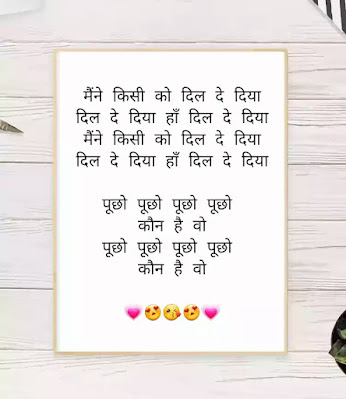 मैंने किसी को दिल दे दिया
दिल दे दिया हाँ दिल दे दिया
मैंने किसी को दिल दे दिया
दिल दे दिया हाँ दिल दे दिया
पूछो पूछो पूछो पूछो
कौन है वो
पूछो पूछो पूछो पूछो
कौन है वो
💗😍😘😍💗